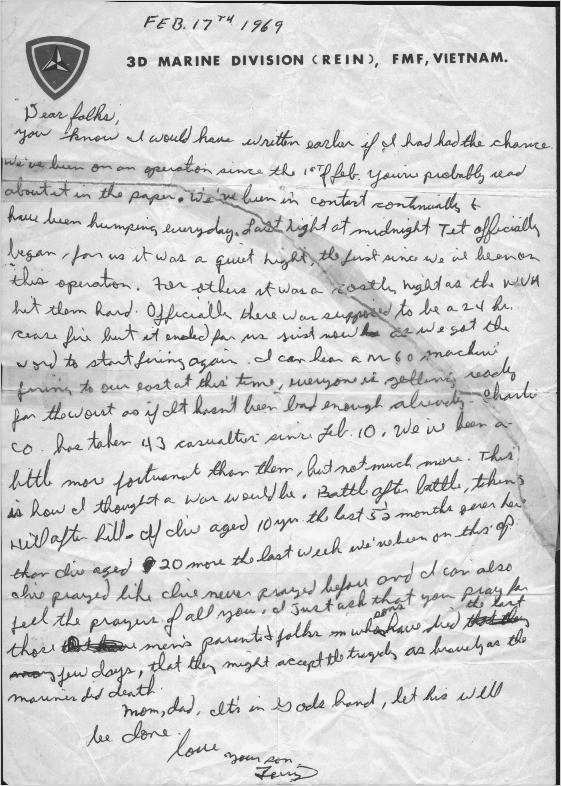 FEB. 17TH 1969
3D MARINE DIVISION (REIN), FMF, VIETNAM.
Dear folks,
You know I would have written earlier if I had had the chance.
We've been on an operation since the 1st of feb. You've probably read
about it in the paper. We've been in contact continually &
have been humping everyday. Last night at midnight Tet officially
began, for us it was a quiet night, the first since we've been on
this operation. For others it was a costly night as the NVA
hit them hard. Officially there was supposed to be a 24 hr.
cease fire but it ended for us just now as we got the
word to start firing again. I can hear a M60 machin
firing to our east at this time, everyone is getting ready
for the worst as if it hasn't been bad enough already. Charlie
Co. has taken 43 casualties since Feb. 10. We've been a
little more fortunant than them, but not much more. This
is how I thought a war would be. Battle after battle, taking
Hill after hill. If I've aged 10 yrs. the last 5½ months over here
than I've aged 20 more the last week we've been on this op.
I've prayed like I've never prayed before and I can also
feel the prayers of all you. I just ask that you pray for
those men's parents & folks in whos sons have died the last
few days, that they might accept the tragedy as bravely as the
marines did death.
Mom, dad, It's in Gods hand, let his will
be done.
love
your son
Terry